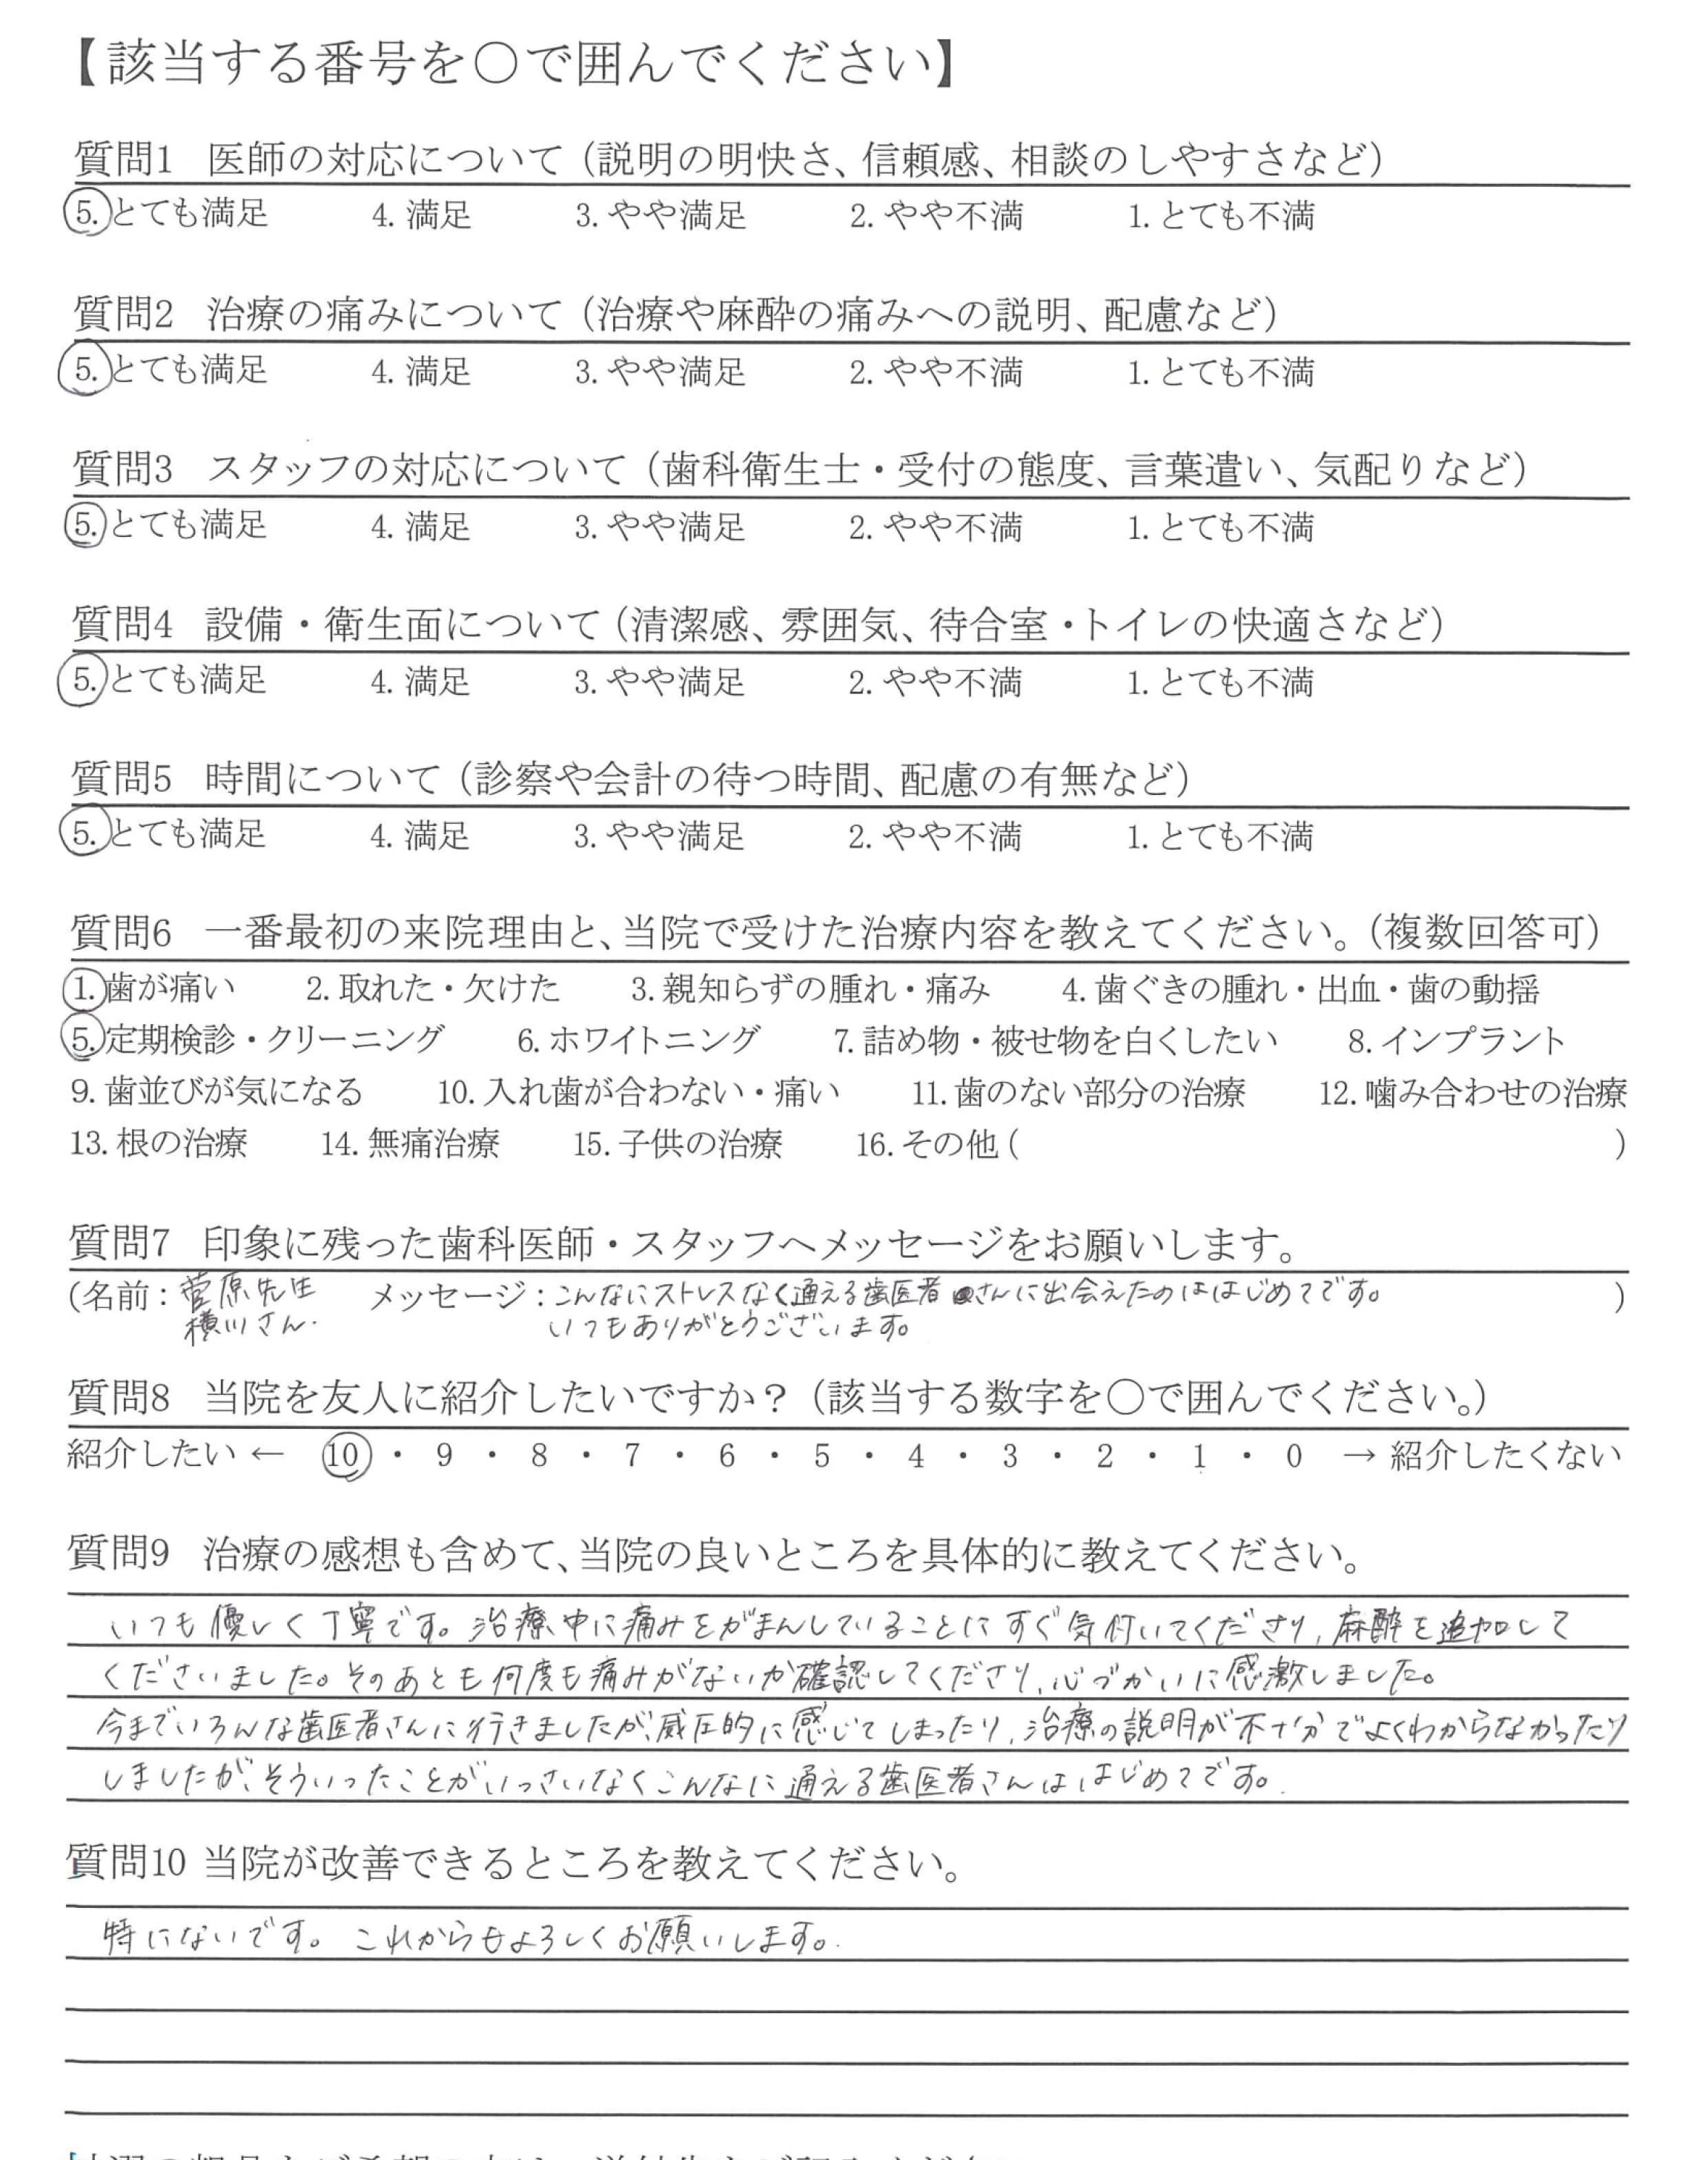 【該当する番号を○で囲んでください】
質問1 医師の対応について（説明の明快さ、信頼感、相談のしやすさなど）
5.とても満足 4.満足 3.やや満足 2.やや不満 1.とても不満
質問2 治療の痛みについて（治療や麻酔の痛みへの説明、配慮など）
5.とても満足 4.満足 3.やや満足 2.やや不満 1.とても不満
質問3 スタッフの対応について（歯科衛生士・受付の態度、言葉遣い、気配りなど）
5.とても満足 4.満足 3.やや満足 2.やや不満 1.とても不満
質問4 設備・衛生面について（清潔感、雰囲気、待合室・トイレの快適さなど）
5.とても満足 4.満足 3.やや満足 2.やや不満 1.とても不満
質問5 時間について（診察や会計の待つ時間、配慮の有無など）
5.とても満足 4.満足 3.やや満足 2.やや不満 1.とても不満
質問6 一番最初の来院理由と、当院で受けた治療内容を教えてください。（複数回答可）
1.歯が痛い 2.取れた・欠けた 3.親知らずの腫れ・痛み 4.歯ぐきの腫れ・出血・歯の動揺
5.定期検診・クリーニング 6.ホワイトニング 7.詰め物・被せ物を白くしたい 8.インプラント
9.歯並びが気になる 10.入れ歯が合わない・痛い 11.歯のない部分の治療 12.噛み合わせの治療
13.根の治療 14.無痛治療 15.子供の治療 16.その他（ ）
質問7 印象に残った歯科医師・スタッフへメッセージをお願いします。
（名前：菅原先生 メッセージ：こんなにストレスなく通える歯医者さんに出会えたのははじめてです。 ）
横川さん. いつもありがとうございます。
質問8 当院を友人に紹介したいですか？（該当する数字を○で囲んでください。）
紹介したい ← 10 ・ 9 ・ 8 ・ 7 ・ 6 ・ 5 ・ 4 ・ 3 ・ 2 ・ 1 ・ 0 → 紹介したくない
質問9 治療の感想も含めて、当院の良いところを具体的に教えてください。
いつも優しく丁寧です。治療中に痛みをがまんしていることにすぐ気付いてくださり、麻酔を追加して
くださいました。そのあとも何度も痛みがないか確認してくださり、心づかいに感激しました。
今までいろんな歯医者さんに行きましたが、威圧的に感じてしまったり、治療の説明が不十分でよくわからなかったり
しましたが、そういったことがいっさいなくこんなに通える歯医者さんははじめてです。
質問10 当院が改善できるところを教えてください。
特にないです。これからもよろしくお願いします。